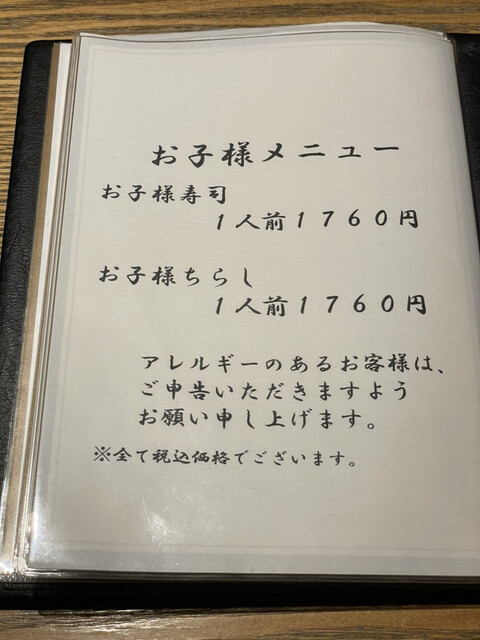 お子様メニュー
お子様寿司
１人前１７６０円
お子様ちらし
１人前１７６０円
アレルギーのあるお客様は、
ご申告いただきますよう
お願い申し上げます。
※全て税込価格でございます。